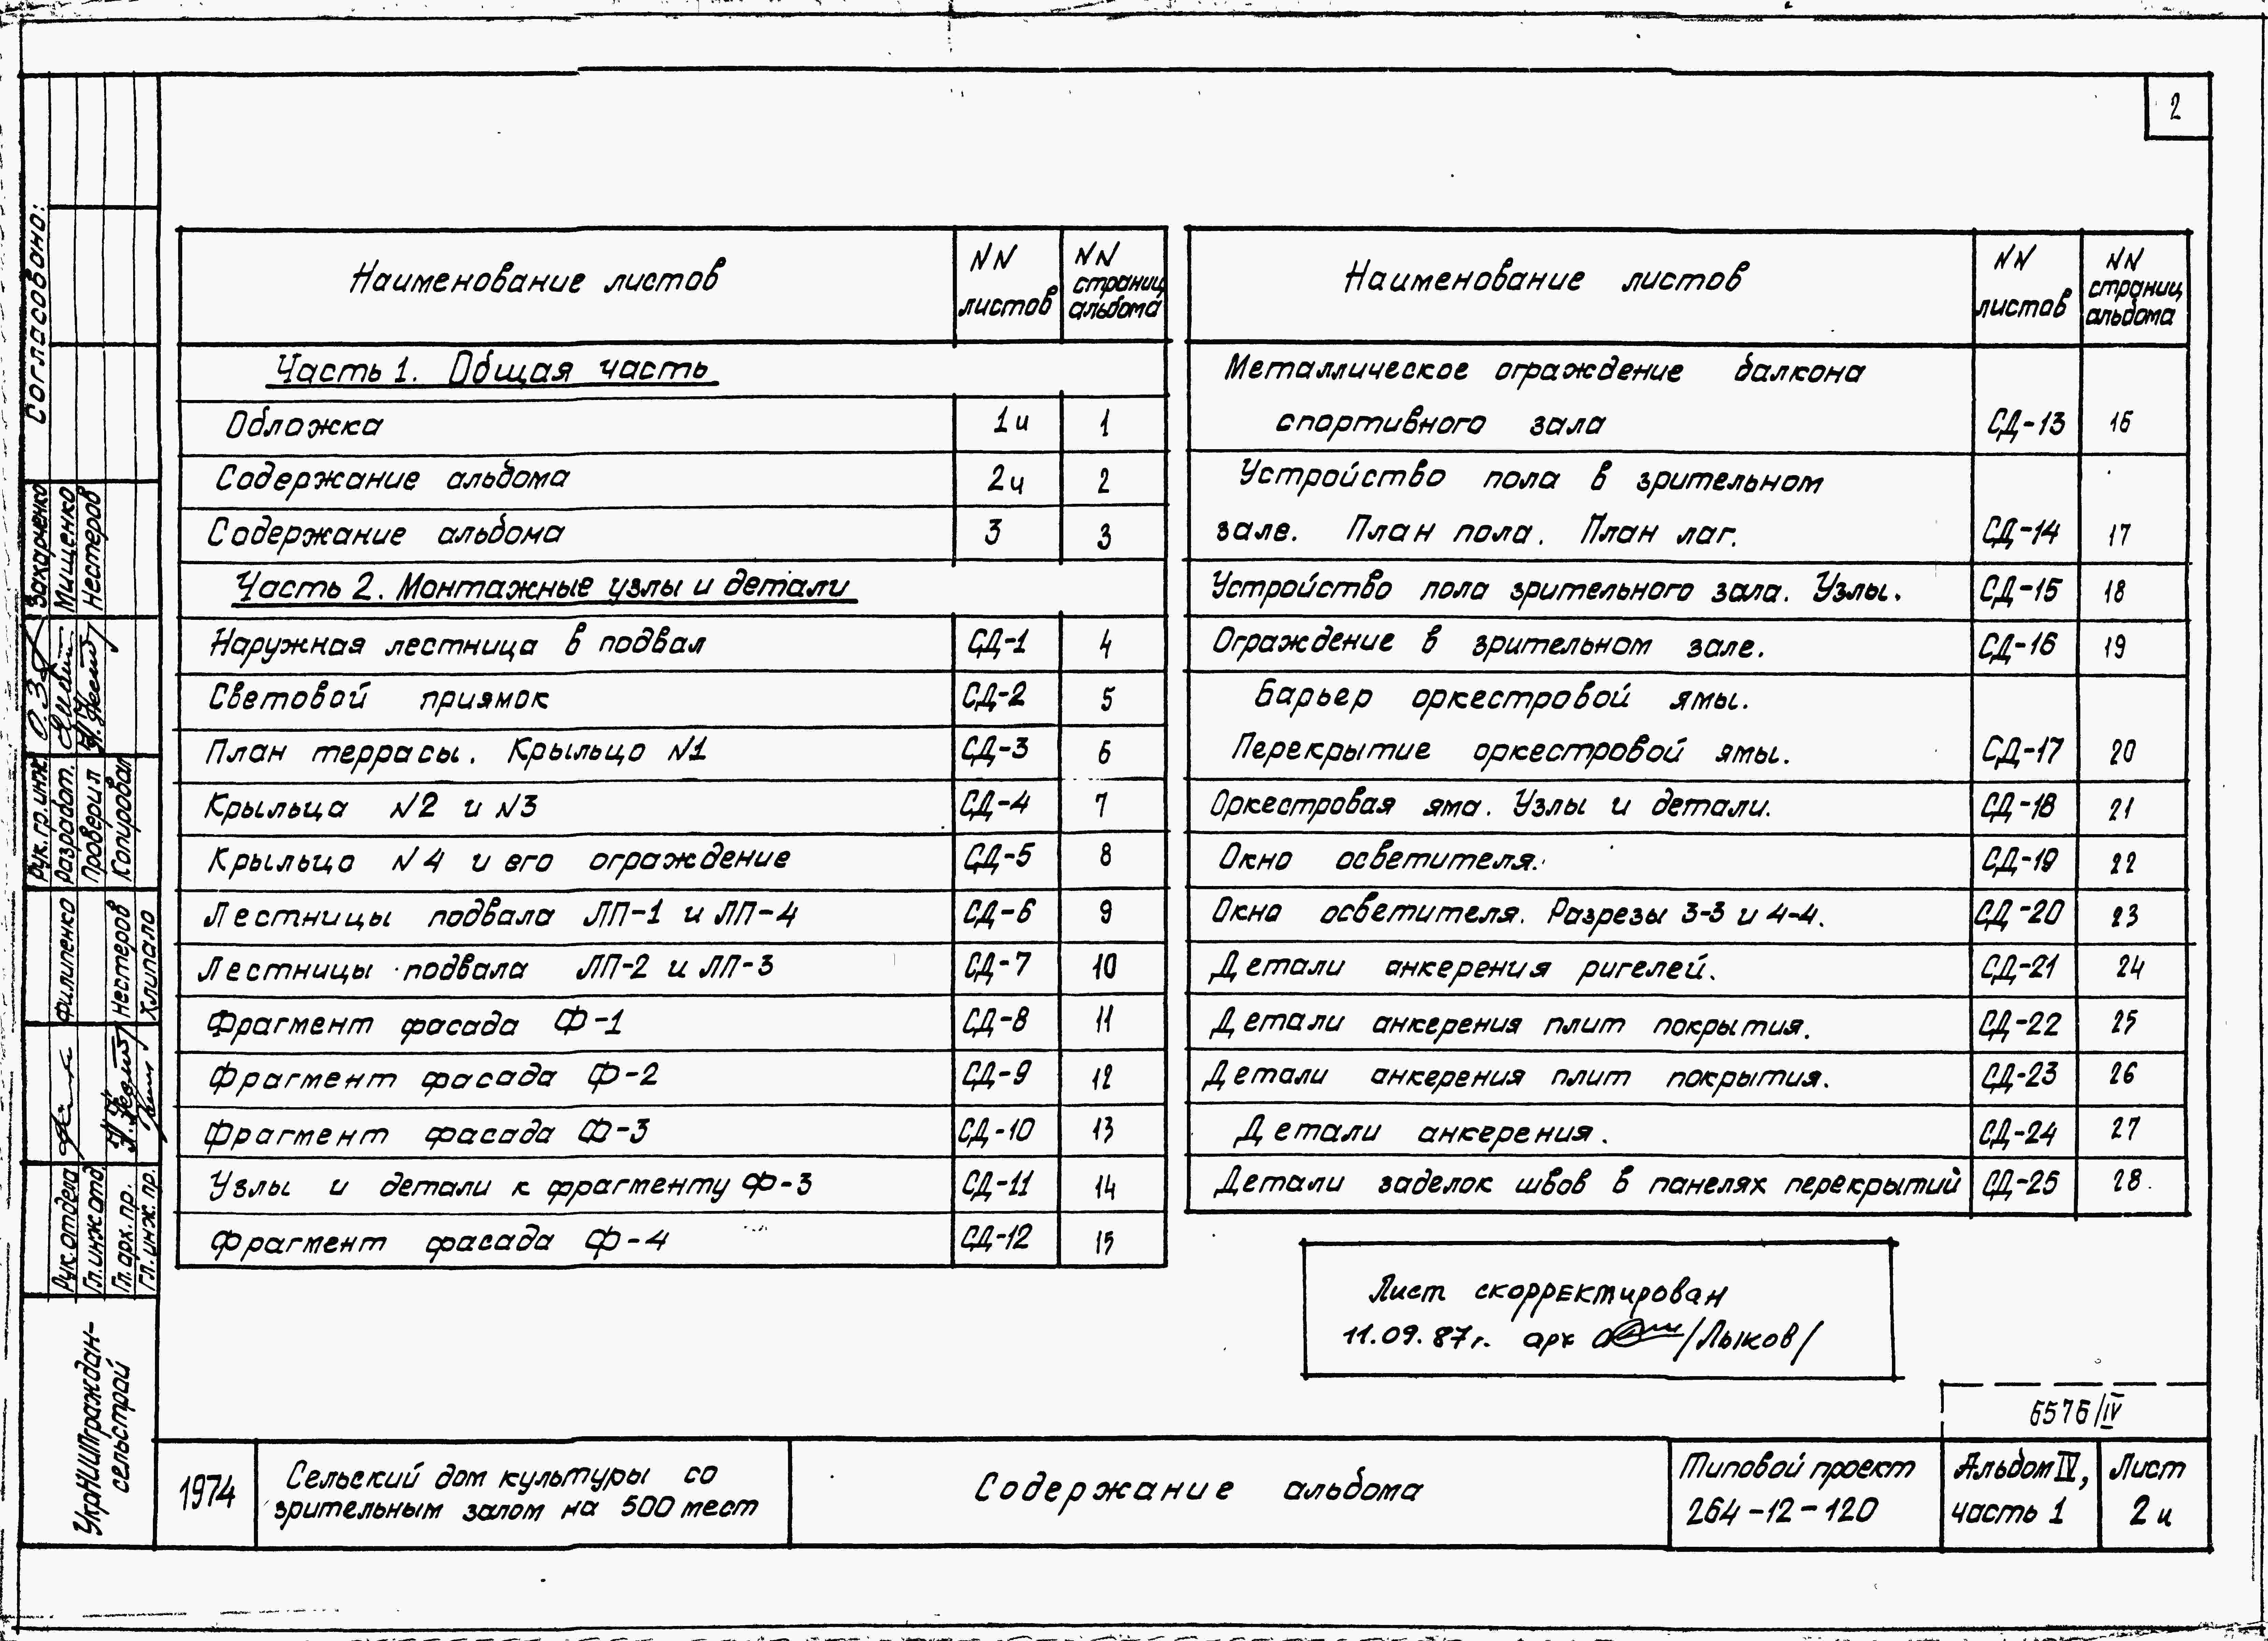 2
Наименование листов | NN листов | NN страниц альбома
Часть 1. Общая часть
Обложка | 1и | 1
Содержание альбома | 2и | 2
Содержание альбома | 3 | 3
Часть 2. Монтажные узлы и детали
Наружная лестница в подвал | СД-1 | 4
Световой приямок | СД-2 | 5
План террасы. Крыльцо N1 | СД-3 | 6
Крыльца N2 и N3 | СД-4 | 7
Крыльцо N4 и его ограждение | СД-5 | 8
Лестницы подвала ЛП-1 и ЛП-4 | СД-6 | 9
Лестницы подвала ЛП-2 и ЛП-3 | СД-7 | 10
Фрагмент фасада Ф-1 | СД-8 | 11
Фрагмент фасада Ф-2 | СД-9 | 12
Фрагмент фасада Ф-3 | СД-10 | 13
Узлы и детали к фрагменту Ф-3 | СД-11 | 14
Фрагмент фасада Ф-4 | СД-12 | 15
Наименование листов | NN листов | NN страниц альбома
Металлическое ограждение балкона
спортивного зала | СД-13 | 16
Устройство пола в зрительном
зале. План пола. План лаг. | СД-14 | 17
Устройство пола зрительного зала. Узлы. | СД-15 | 18
Ограждение в зрительном зале. | СД-16 | 19
Барьер оркестровой ямы.
Перекрытие оркестровой ямы. | СД-17 | 20
Оркестровая яма. Узлы и детали. | СД-18 | 21
Окно осветителя. | СД-19 | 22
Окно осветителя. Разрезы 3-3 и 4-4. | СД-20 | 23
Детали анкерения ригелей. | СД-21 | 24
Детали анкерения плит покрытия. | СД-22 | 25
Детали анкерения плит покрытия. | СД-23 | 26
Детали анкерения. | СД-24 | 27
Детали заделок швов в панелях перекрытий | СД-25 | 28
Лист скорректирован
11.09.87г. арх /Лыков/
6576/IV
1974
Сельский дом культуры со
зрительным залом на 500 мест
Содержание альбома
Типовой проект
264-12-120
Альбом IV,
часть 1
Лист
2и
Согласовано:
Рук. гр. инж. Захарченко
Разработ. Мищенко
Проверил Нестеров
Копировал
Рук. отдела Филипенко
Гл. инж. отд.
Гл. арх. пр. Нестеров
Гл. инж. пр. Хлипало
УкрНИИПграждан-
сельстрой